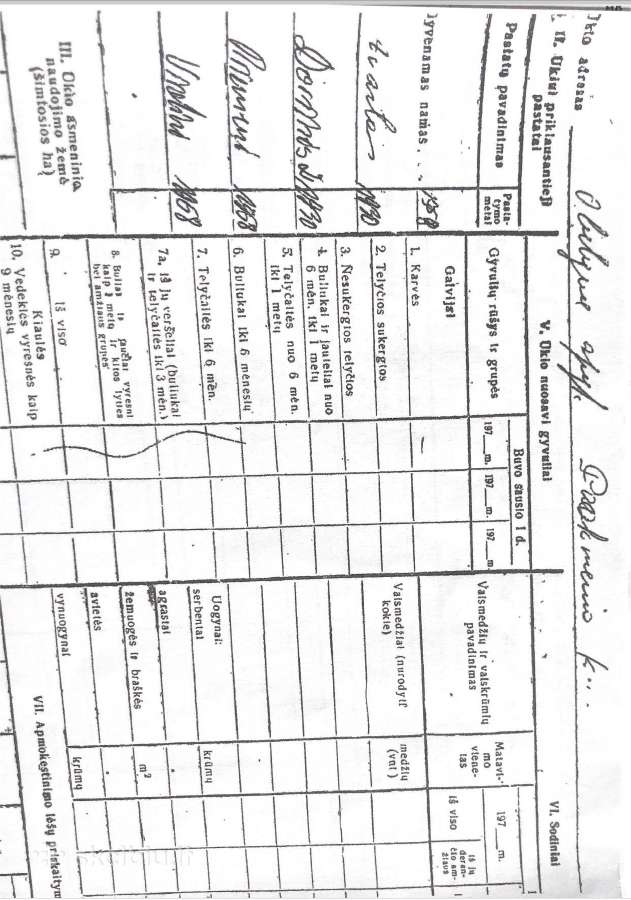 Ūkio adresas
apyl.
k.
II. Ūkiui priklausantieji
pastatai
Pastatų pavadinimas
Pasta-
tymo
metai
Gyvenamas namas . . . 1958
tvartas 1930
1930
1958
1958
III. Ūkio asmeninia
naudojimo žemė
(šimtosios ha)
V. Ūkio nuosavi gyvuliai
Gyvulių rūšys ir grupės
Buvo sausio 1 d.
197__m.
197__m.
197__m
Galvijai
1. Karvės
2. Telyčios sukergtos
3. Nesukergtos telyčios
4. Buliukai ir jaučeliai nuo
6 mėn. iki 1 metų
5. Telyčaitės nuo 6 mėn.
iki 1 metų
6. Buliukai iki 6 mėnesių
7. Telyčaitės iki 6 mėn.
7a. iš jų veršeliai (buliukai
ir telyčaitės iki 3 mėn.)
8. Buliai ir jaučiai vyresni
kaip 1 metų ir kitos lyties
bei amžiaus grupės
9. Iš viso
Kiaulės
10. Vedeklės vyresnės kaip
9 mėnesių
VI. Sodiniai
Vaismedžių ir vaiskrūmių
pavadinimas
Matavi-
mo
viene-
tas
197__m.
iš viso
iš jų
deran-
čio am-
žiaus
Vaismedžiai (nurodyti
kokie)
medžių
(vnt)
Uogynai:
serbentai
krūmų
agrastai
žemuogės ir braškės
m²
avietės
vynuogynai
krūmų
VII. Apmokestinimo lėšų priskaitym